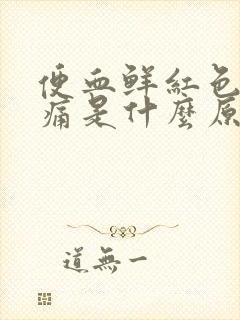 便血鮮紅色
痛是什麼原
道無一